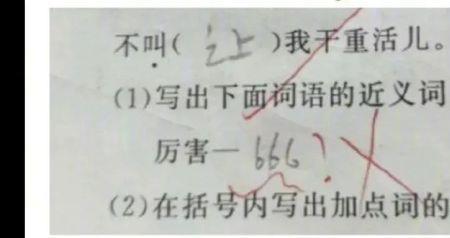 不叫(让)我干重活儿。
(1)写出下面词语的近义词
厉害—666?
(2)在括号内写出加点词的